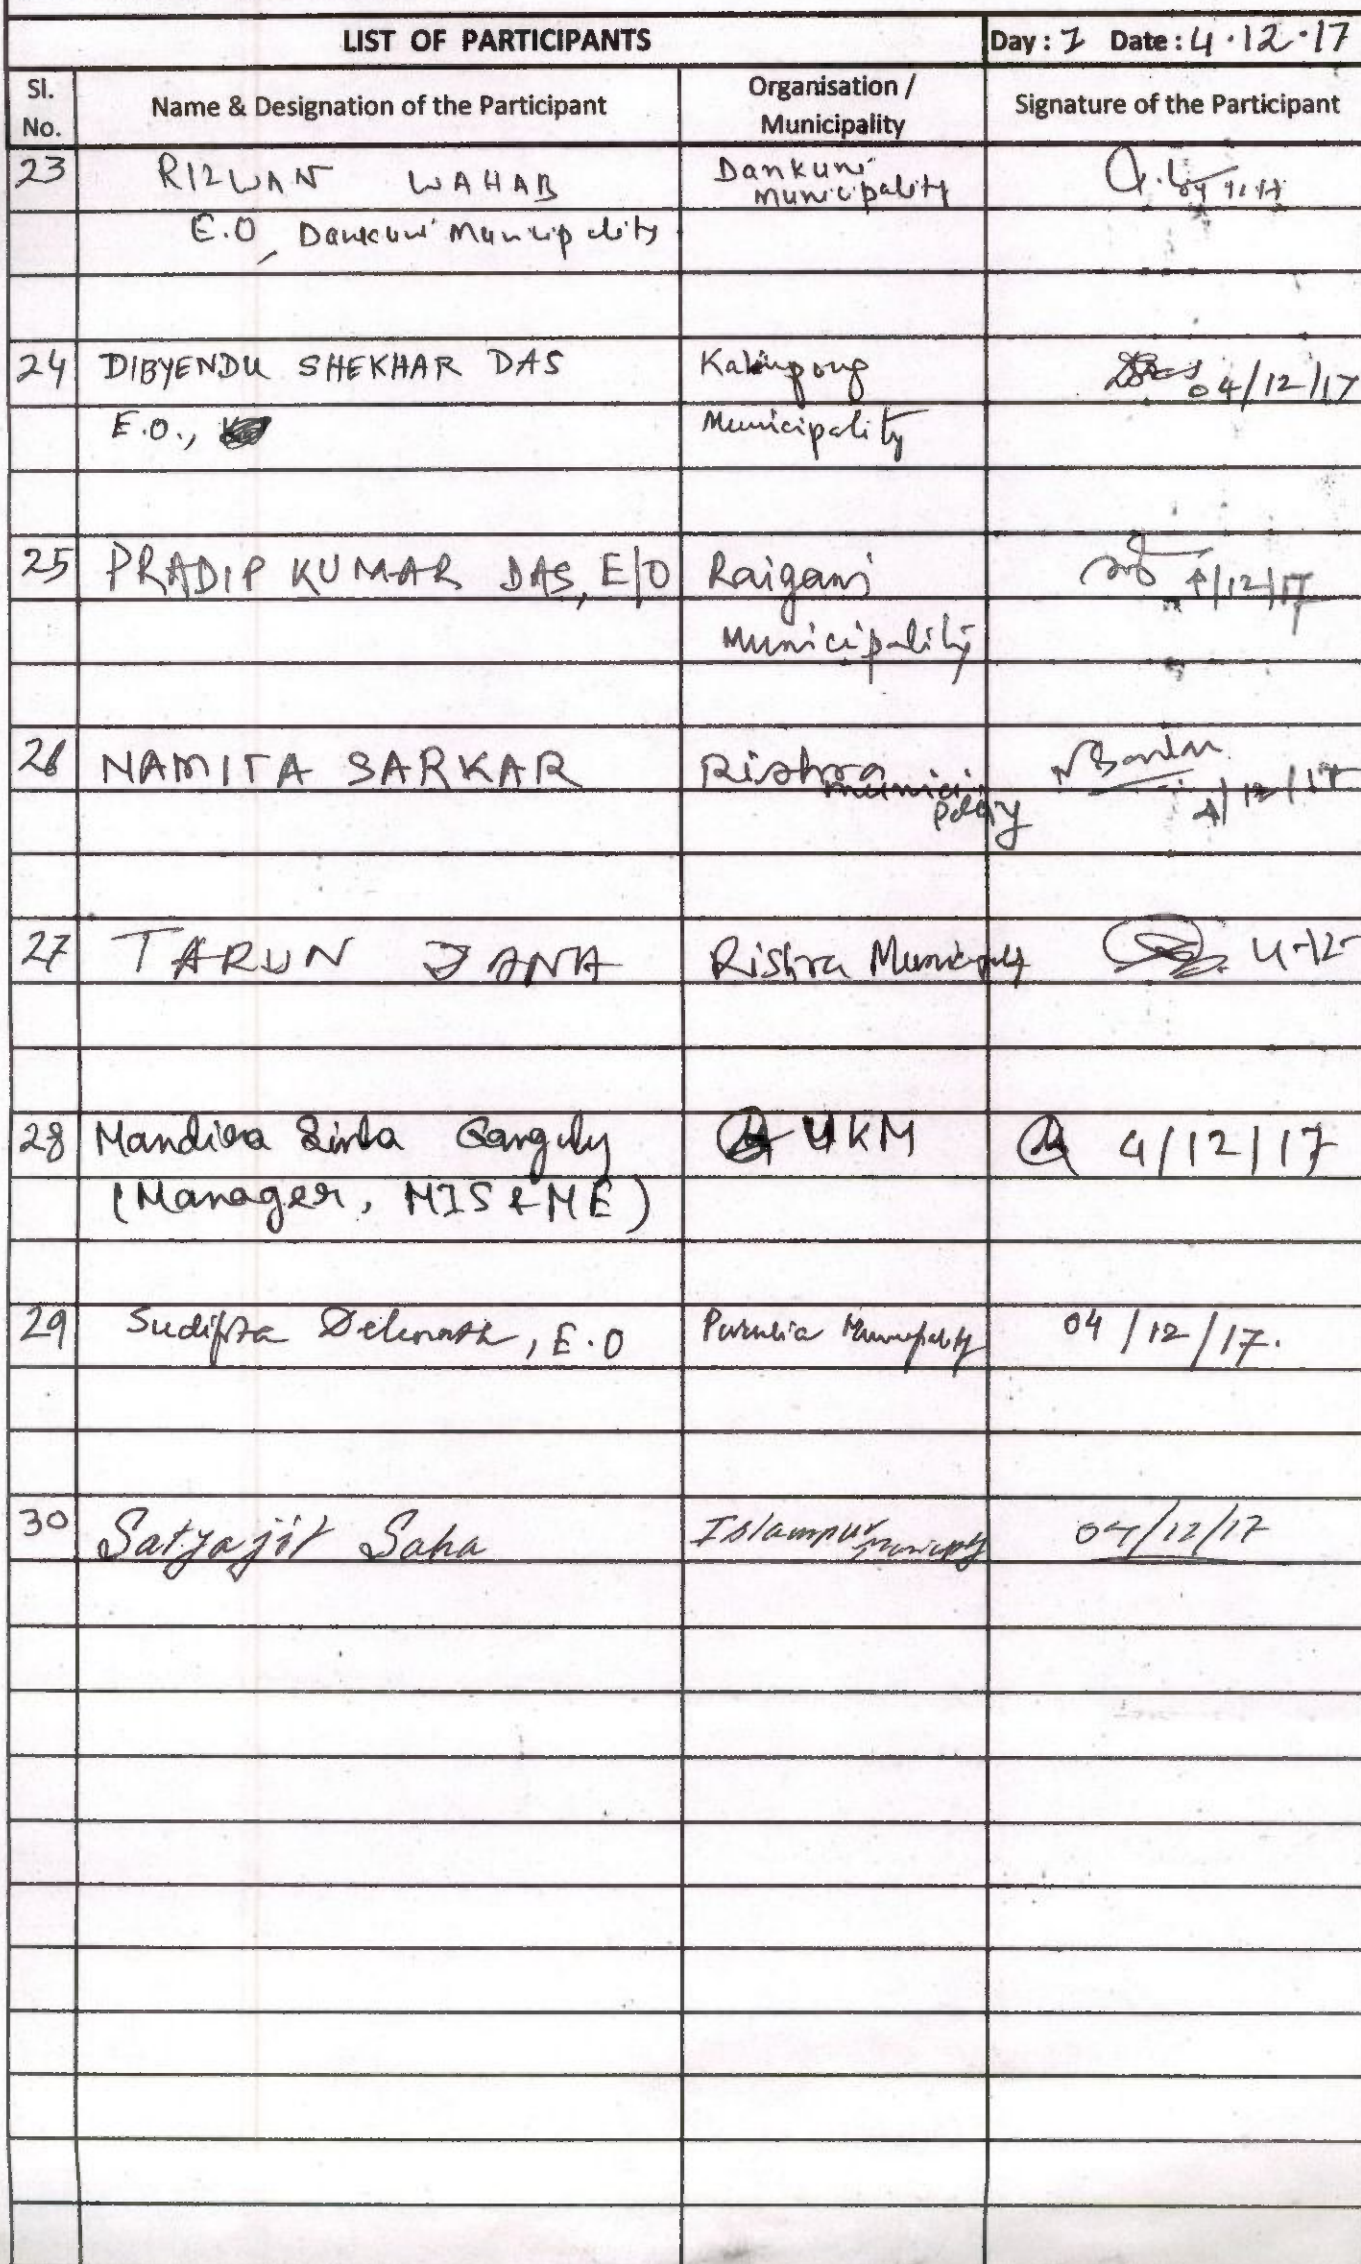 LIST OF PARTICIPANTS Day : 1 Date : 4.12.17
Sl. No. Name & Designation of the Participant Organisation / Municipality Signature of the Participant
23 RIZWAN WAHAB Dankuni Municipality
E.O, Dankuni Municipality
24 DIBYENDU SHEKHAR DAS Kalimpong 04/12/17
E.O., Municipality
25 PRADIP KUMAR DAS, E/O Raiganj 4/12/17
Municipality
26 NAMITA SARKAR Rishra municipality NSarkar 4/12/17
27 TARUN JANA Rishra Municipality 4-12-
28 Mandira Sinha Ganguly UKM 4/12/17
(Manager, MIS & ME)
29 Sudipta Debnath, E.O Purulia Municipality 04/12/17.
30 Satyajit Saha Islampur Municipality 04/12/17